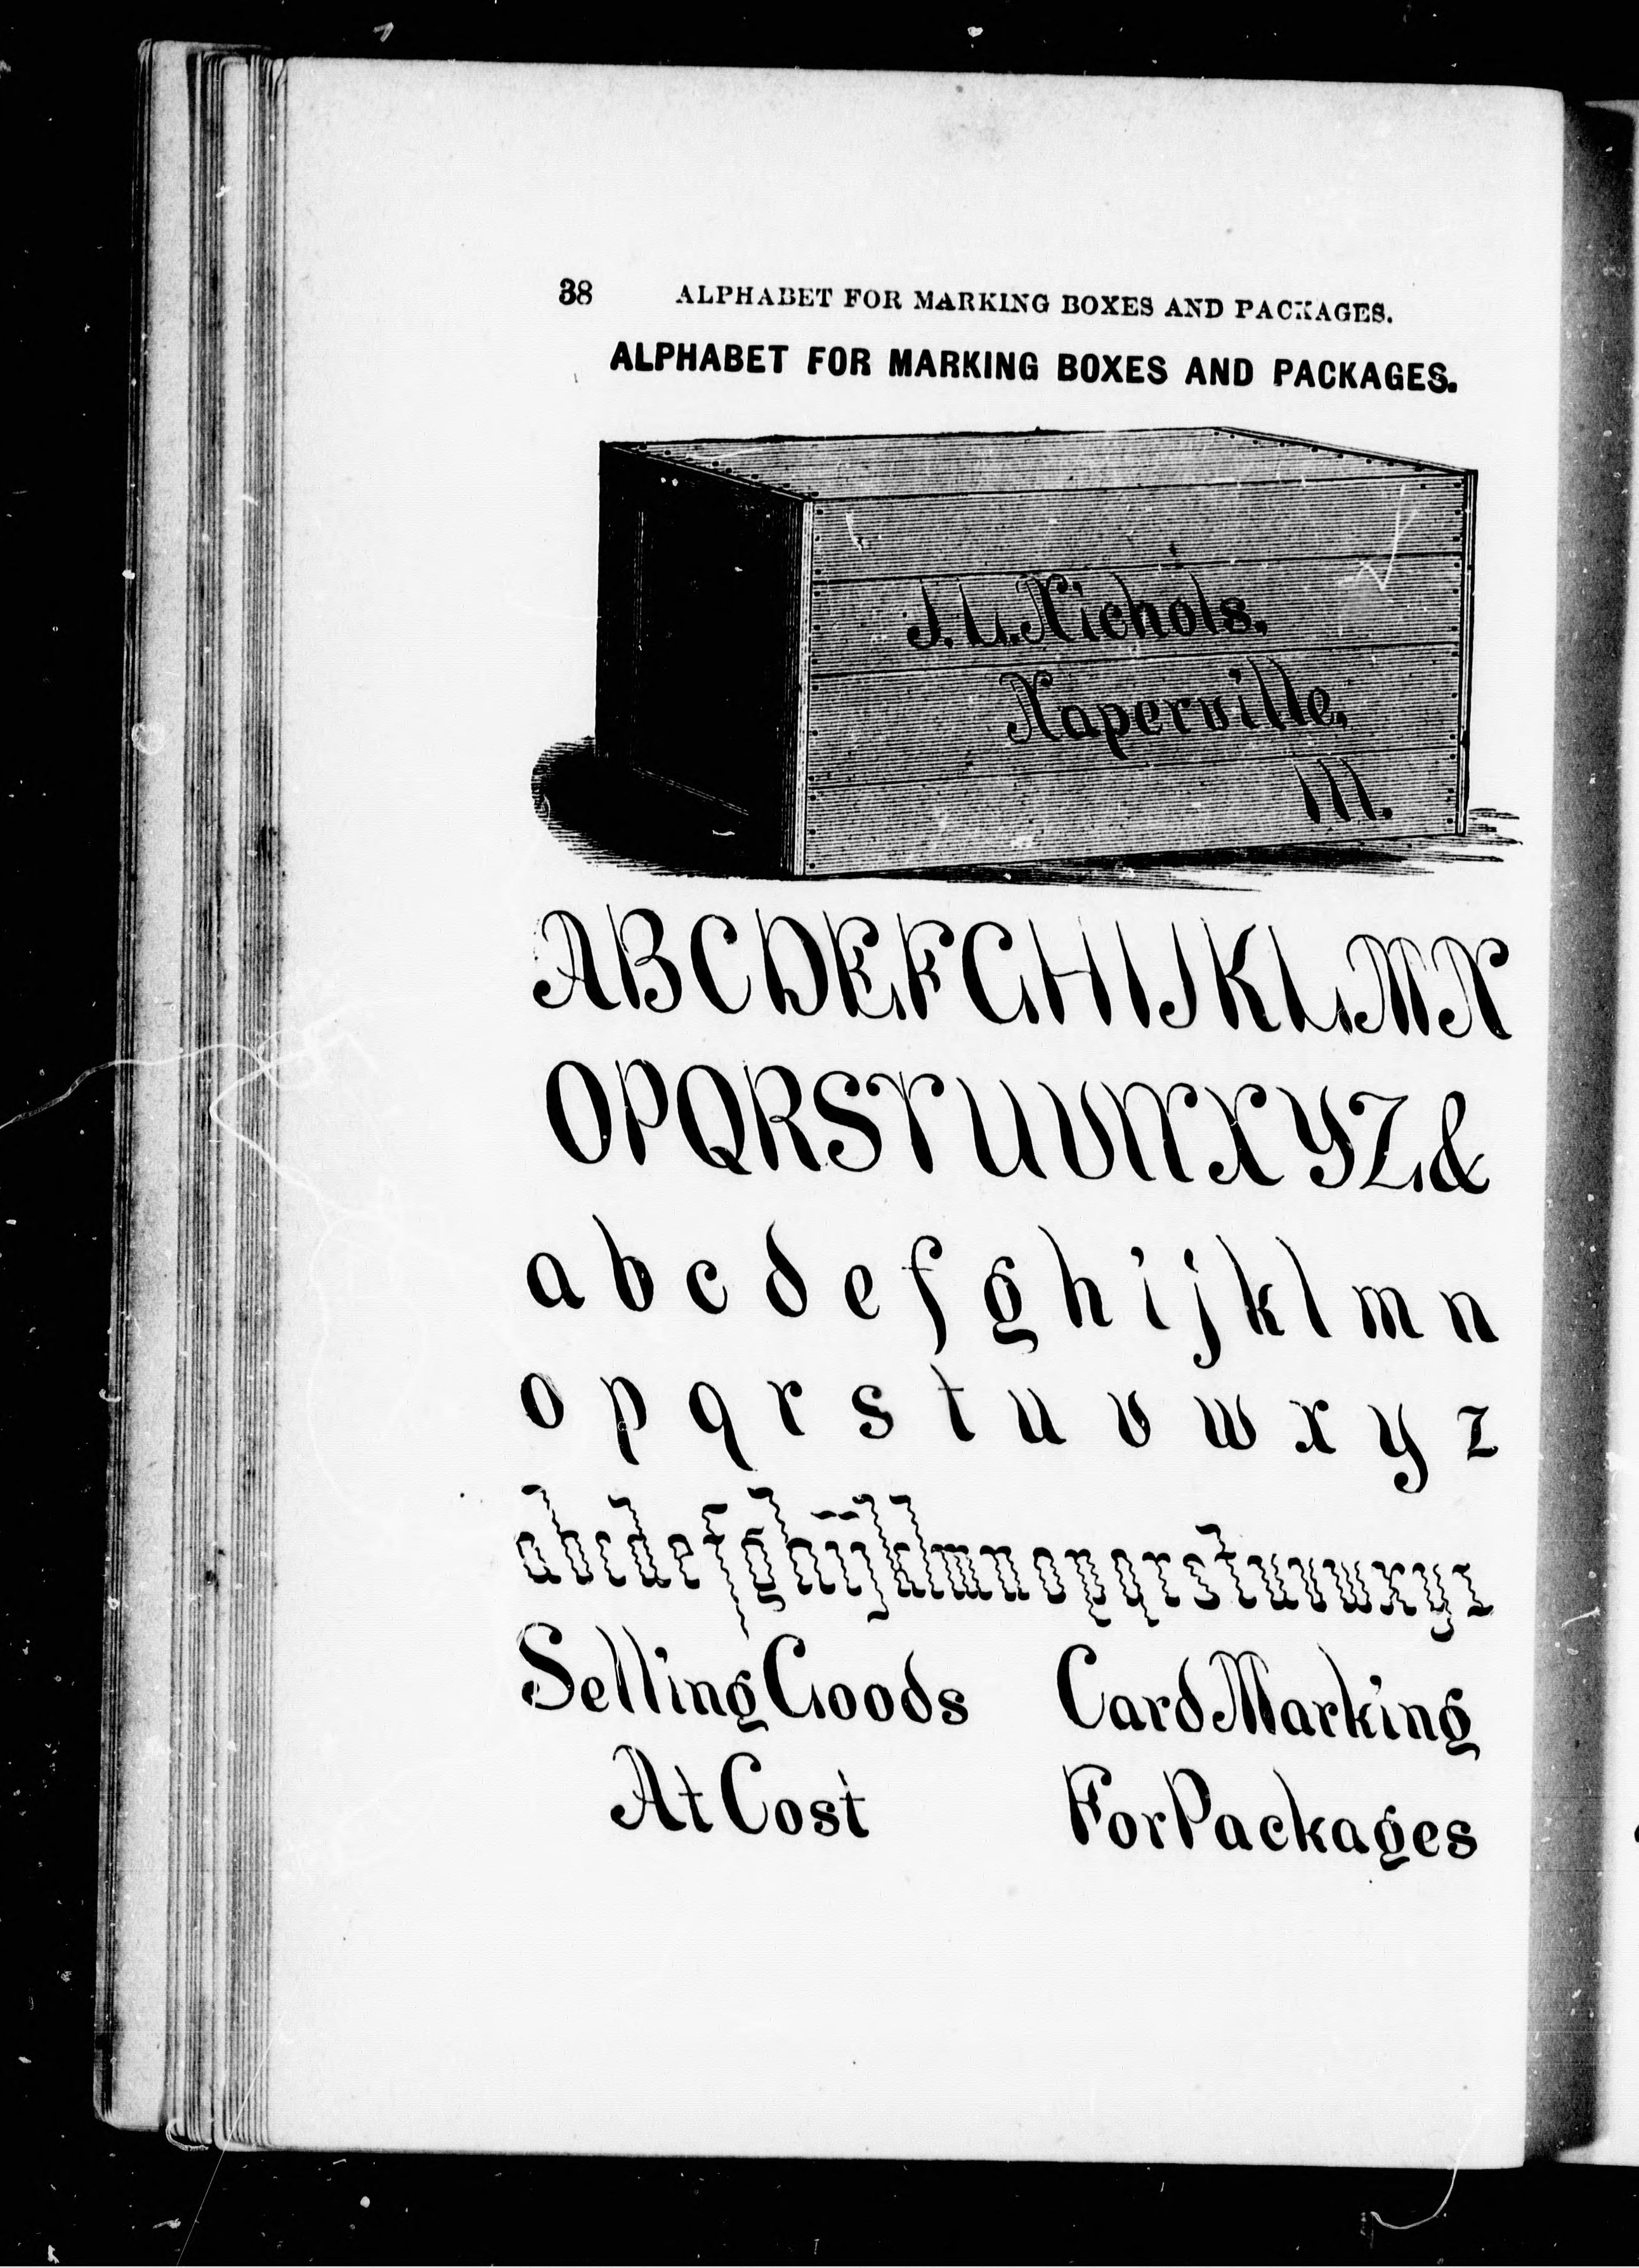 38 ALPHABET FOR MARKING BOXES AND PACKAGES.
ALPHABET FOR MARKING BOXES AND PACKAGES.
J. L. Nichols,
Naperville,
Ill.
A B C D E F G H I J K L M N
O P Q R S T U V W X Y Z &
a b c d e f g h i j k l m n
o p q r s t u v w x y z
a b c d e f g h i j k l m n o p q r s t u v w x y z
Selling Goods Card Marking
At Cost For Packages